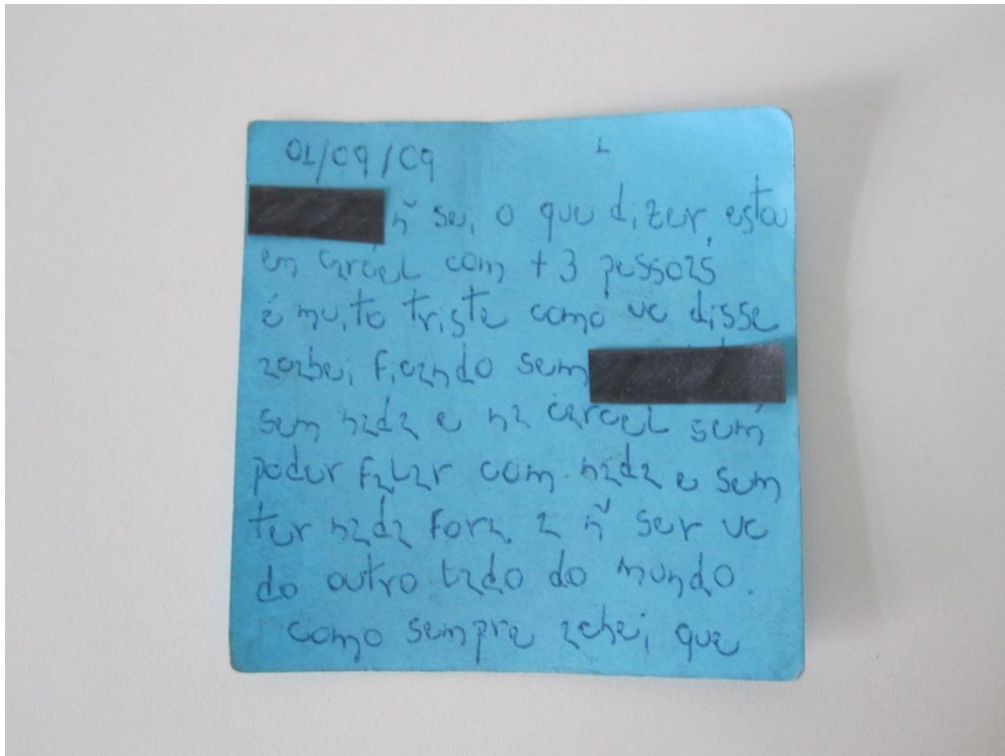 01/09/09 1
ñ sei o que dizer, estou
en carcel com + 3 pessoas
é muito triste como vc disse
acabei ficando sem
sem nada e na carcel sem
poder falar com nada e sem
ter nada fora a ñ ser vc
do outro lado do mundo.
como sempre achei que